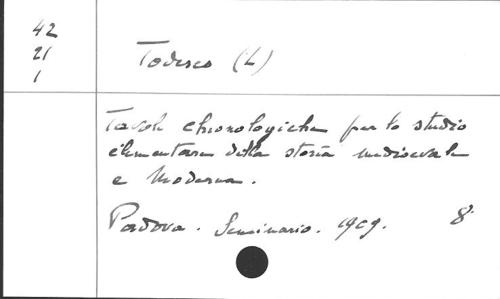 42
21
1
Todesco (L)
Tavole chronologiche per lo studio
elementare della storia medioevale
e Moderna.
Padova. Seminario. 1909. 8.